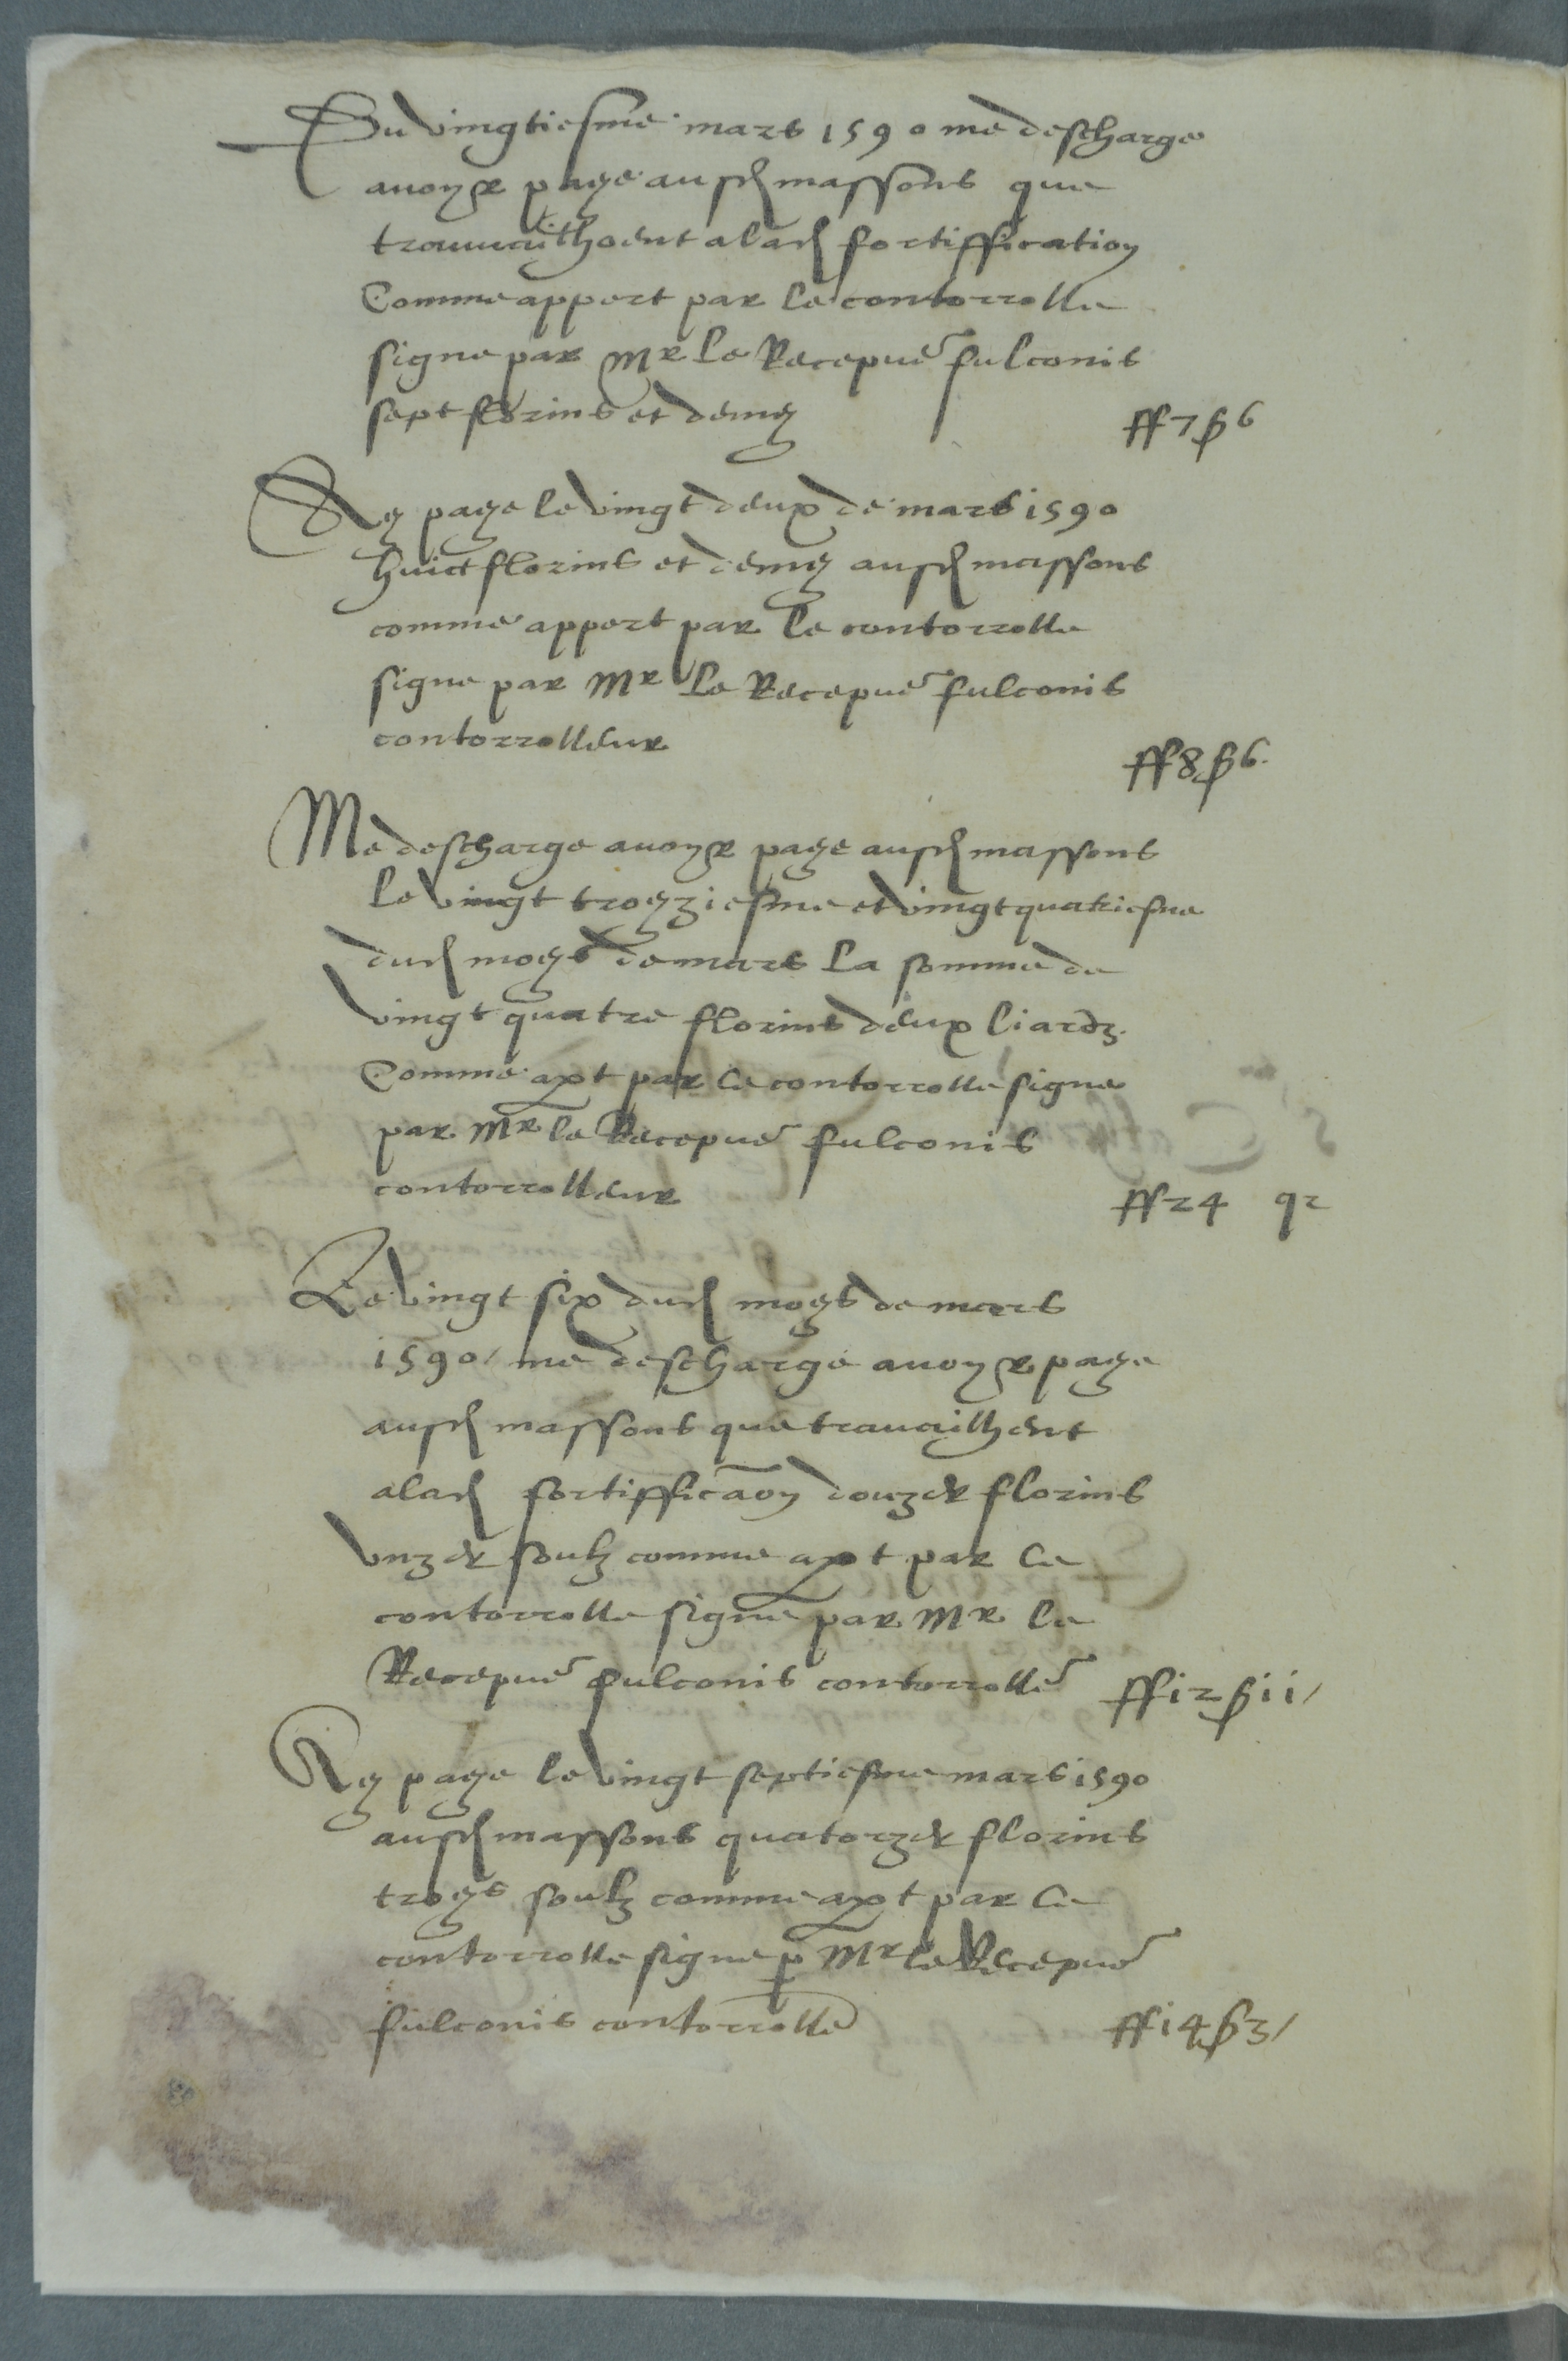 Du vingtiesme mars 1590 me descharge
avoyr paye ausd massons que
travailhoent a lad fortiffication
Comme appert par le contorrolle
signe par Mr le Recepuer fulconis
sept florins et demy ff 7 ß 6
Ay paye le vingt deux de mars 1590
huict florins et demy ausd massons
comme appert par le contorrolle
signe par Mr le Recepuer fulconis
contorrolleur ff 8 ß 6.
Me descharge avoyr paye ausd massons
le vingt troyziesme et vingt quatriesme
dud moys de mars la somme de
vingt quatre florins deux liardz.
Comme apt par le contorrolle signe
par Mr le Recepuer fulconis
contorrolleur ff 24 q 2
Le vingt six dud moys de mars
1590/ me descharge avoyr paye
ausd massons que travailhent
a lad fortifficaon douzes florins
vnzes soulz comme apt par le
contorrolle signe par Mr le
Recepuer fulconis contorroller ff 12 ß 11/
Ay paye le vingt septiesme mars 1590
ausd massons quatorzes florins
troys soulz comme apt par le
contorrolle signe p Mr le Recepuer
fulconis contorrolle ff 14 ß 3/